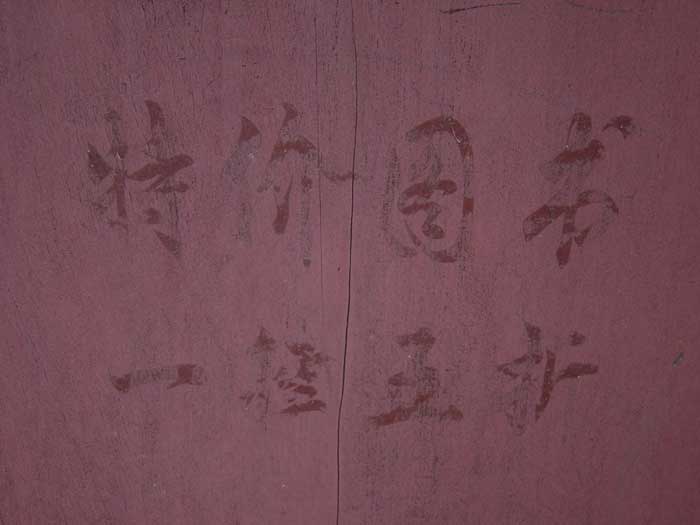 特价图书
一律五折